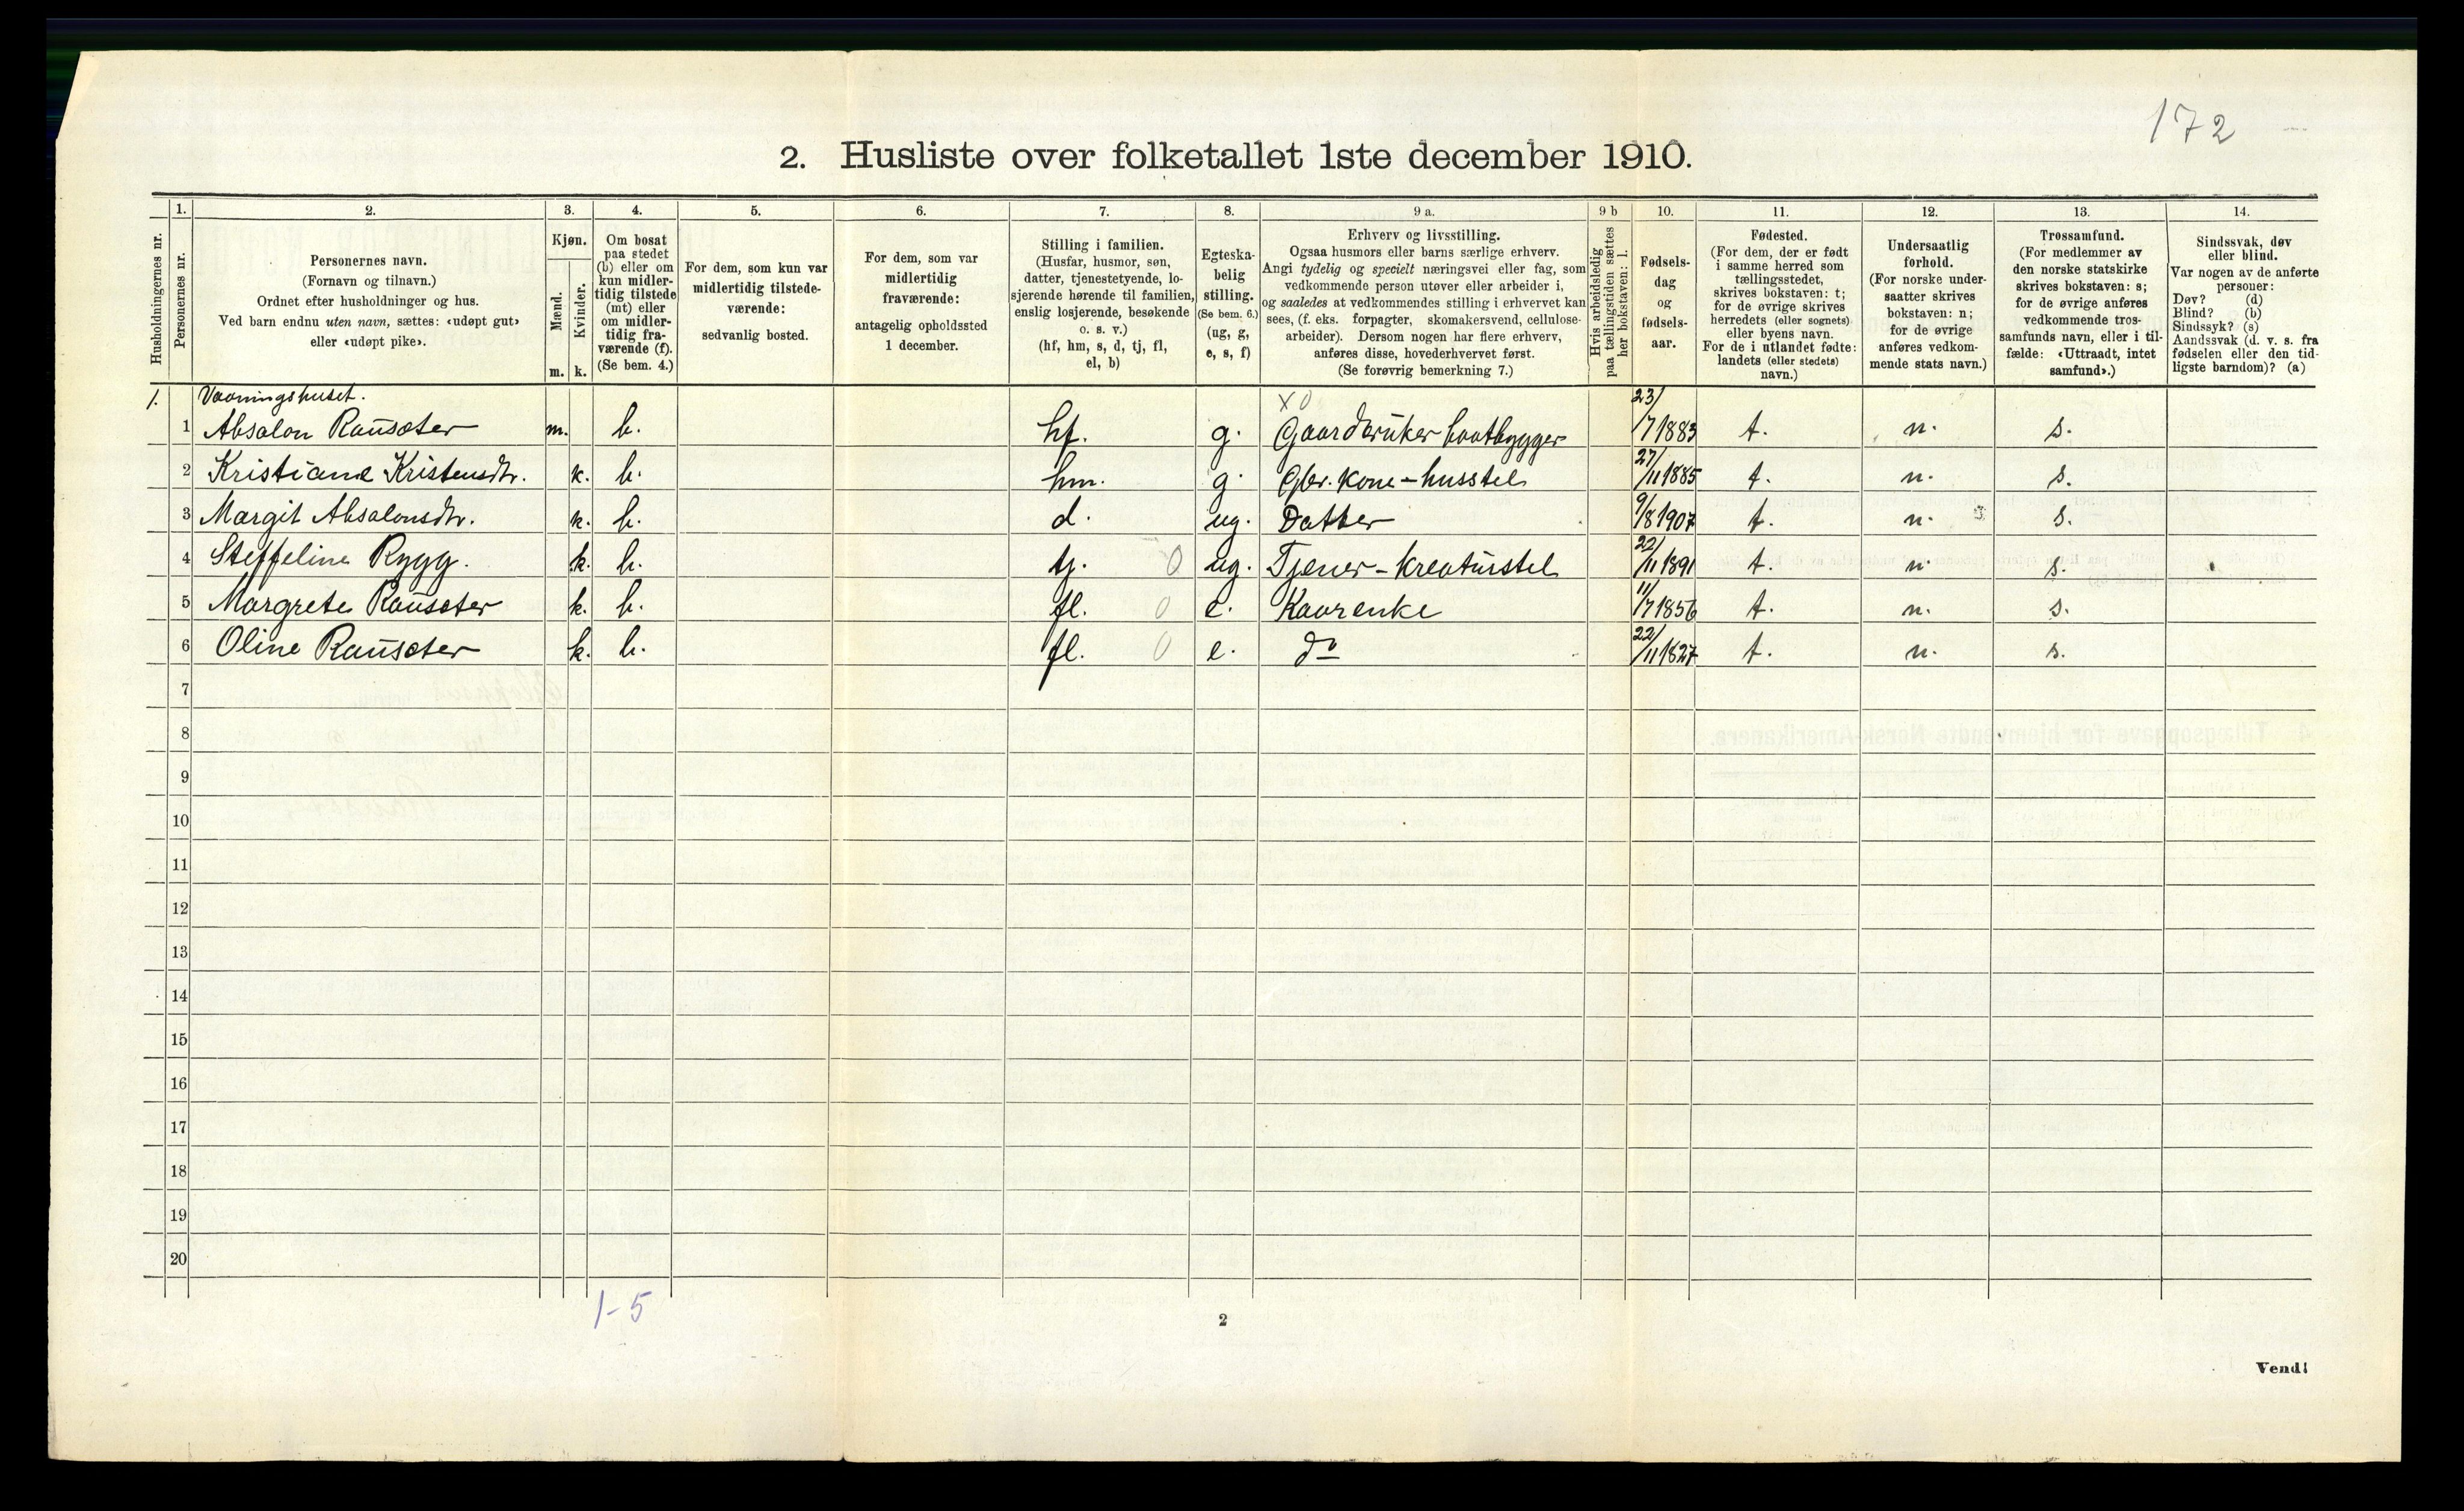 172
2. Husliste over folketallet 1ste december 1910.
Husholdningernes nr.
1.
Personernes nr.
2.
Personernes navn.
(Fornavn og tilnavn.)
Ordnet efter husholdninger og hus.
Ved barn endnu uten navn, sættes: «udøpt gut»
eller «udøpt pike».
3.
Kjøn.
Mænd.
Kvinder.
m. k.
4.
Om bosat
paa stedet
(b) eller om
kun midler-
tidig tilstede
(mt) eller
om midler-
tidig fra-
værende (f).
(Se bem. 4.)
5.
For dem, som kun var
midlertidig tilstede-
værende:
sedvanlig bosted.
6.
For dem, som var
midlertidig
fraværende:
antagelig opholdssted
1 december.
7.
Stilling i familien.
(Husfar, husmor, søn,
datter, tjenestetyende, lo-
sjerende hørende til familien,
enslig losjerende, besøkende
o. s. v.)
(hf, hm, s, d, tj, fl,
el, b)
8.
Egteska-
belig
stilling.
(Se bem. 6.)
(ug, g,
e, s, f)
9 a.
Erhverv og livsstilling.
Ogsaa husmors eller barns særlige erhverv.
Angi tydelig og specielt næringsvei eller fag, som
vedkommende person utøver eller arbeider i,
og saaledes at vedkommendes stilling i erhvervet kan
sees, (f. eks. forpagter, skomakersvend, cellulose-
arbeider). Dersom nogen har flere erhverv,
anføres disse, hovederhvervet først.
(Se forøvrig bemerkning 7.)
9 b
Hvis arbeidsledig
paa tællingstiden sættes
her bokstaven: l.
10.
Fødsels-
dag
og
fødsels-
aar.
11.
Fødested.
(For dem, der er født
i samme herred som
tællingsstedet,
skrives bokstaven: t;
for de øvrige skrives
herredets (eller sognets)
eller byens navn.
For de i utlandet fødte:
landets (eller stedets)
navn.)
12.
Undersaatlig
forhold.
(For norske under-
saatter skrives
bokstaven: n;
for de øvrige
anføres vedkom-
mende stats navn.)
13.
Trossamfund.
(For medlemmer av
den norske statskirke
skrives bokstaven: s;
for de øvrige anføres
vedkommende tros-
samfunds navn, eller i til-
fælde: «Uttraadt, intet
samfund».)
14.
Sindssvak, døv
eller blind.
Var nogen av de anførte
personer:
Døv? (d)
Blind? (b)
Sindssyk? (s)
Aandssvak (d. v. s. fra
fødselen eller den tid-
ligste barndom)? (a)
1. Vaaningshuset.
X 0
1 Absalon Rausæter m. b. hf. g. Gaardbruker baatbygger 23/7 1883 t. n. s.
2 Kristiane Kristensdtr. k. b. hm. g. Gbr. kone - husstel 27/11 1885 t. n. s.
3 Margit Absalonsdtr. k. b. d. ug. Datter 9/8 1907 t. n. s.
4 Steffeline Rygg. k. b. tj. 0 ug. Tjener - kreaturstel 22/11 1891 t. n. s.
5 Margrete Rausæter k. b. fl. 0 e. Kaarenke 11/7 1856 t. n. s.
6 Oline Rausæter k. b. fl. 0 e. do 22/11 1827 t. n. s.
7
8
9
10
11
12
13
14
15
16
17
18
19
20
1-5
2
Vend!